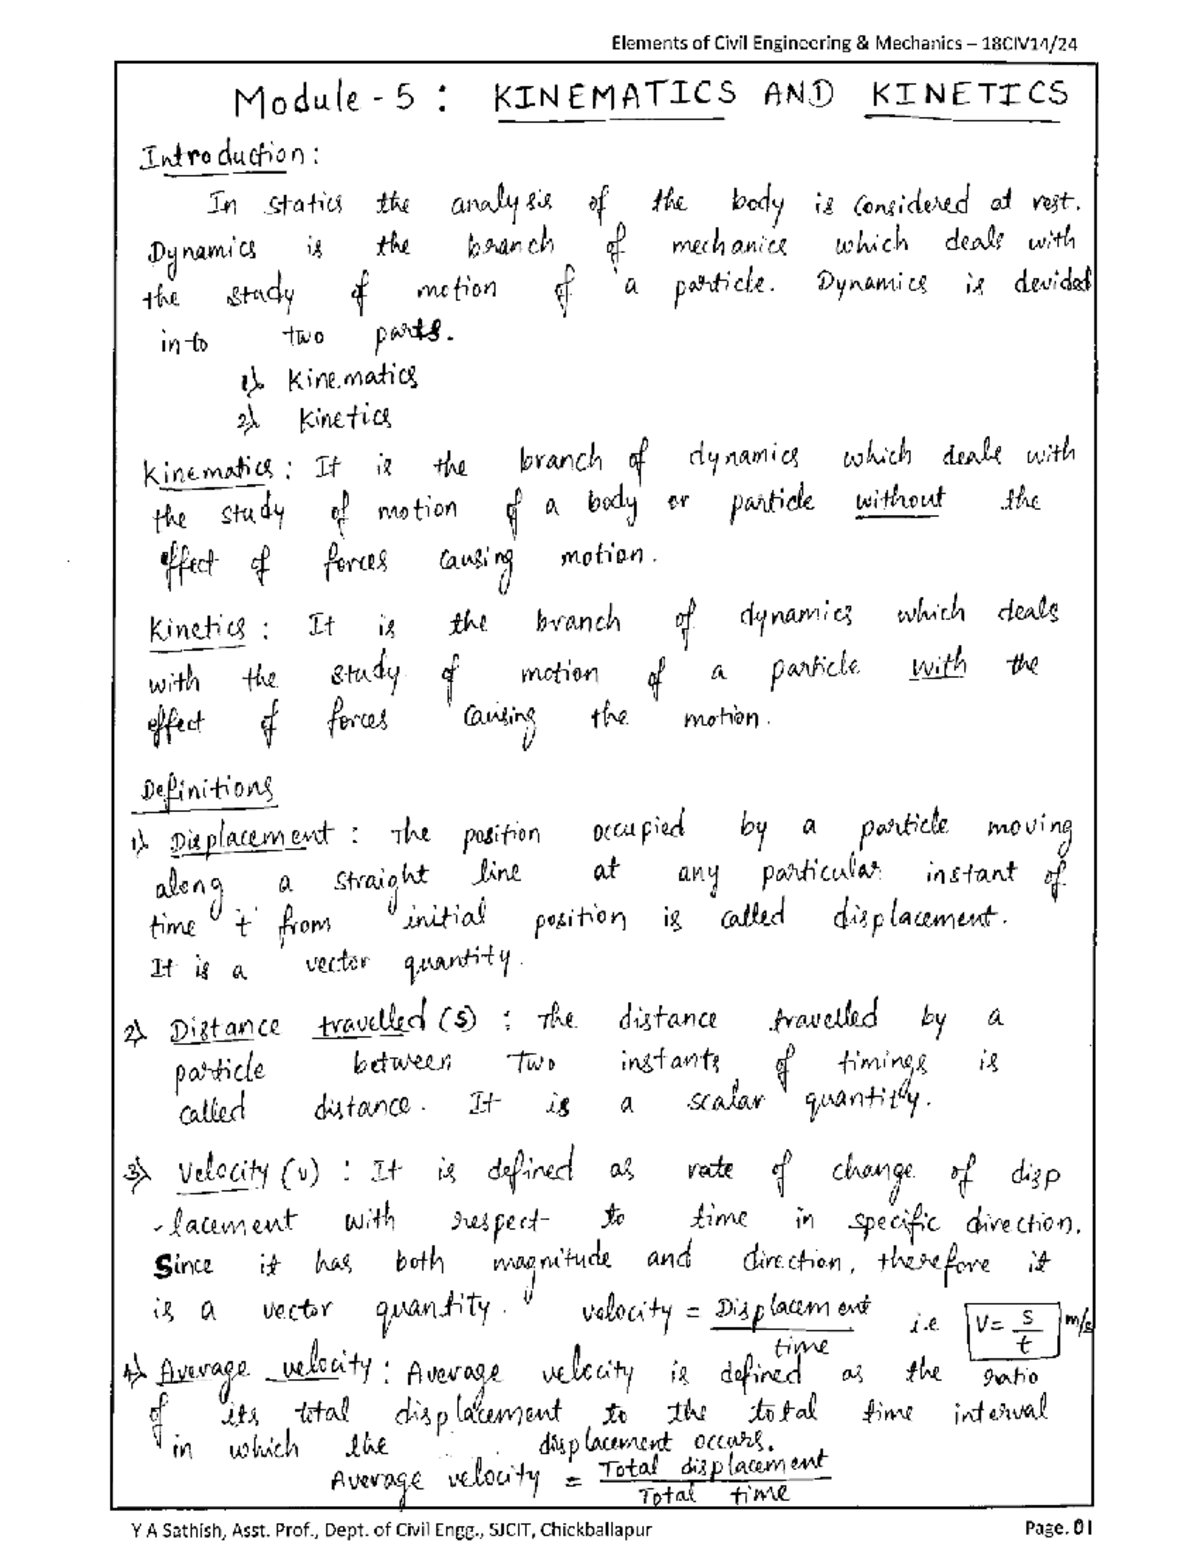 Elements of Civil Engineering & Mechanics – 18CIV14/24
Module - 5 : KINEMATICS AND KINETICS
Introduction :
In statics the analysis of the body is considered at rest.
Dynamics is the branch of mechanics which deals with
the study of motion of a particle. Dynamics is devided
into two parts.
1) Kinematics
2) Kinetics
Kinematics : It is the branch of dynamics which deals with
the study of motion of a body or particle without the
effect of forces causing motion.
Kinetics : It is the branch of dynamics which deals
with the study of motion of a particle with the
effect of forces causing the motion.
Definitions
1) Displacement : The position occupied by a particle moving
along a straight line at any particular instant of
time 't' from initial position is called displacement.
It is a vector quantity.
2) Distance travelled (s) : The distance travelled by a
particle between two instants of timings is
called distance. It is a scalar quantity.
3) Velocity (v) : It is defined as rate of change of disp
-lacement with respect to time in specific direction.
Since it has both magnitude and direction, therefore it
is a vector quantity. velocity = Displacement / time i.e V = s / t m/s
4) Average velocity : Average velocity is defined as the ratio
of its total displacement to the total time interval
in which the displacement occurs.
Average velocity = Total displacement / Total time
Y A Sathish, Asst. Prof., Dept. of Civil Engg., SJCIT, Chickballapur Page. 01